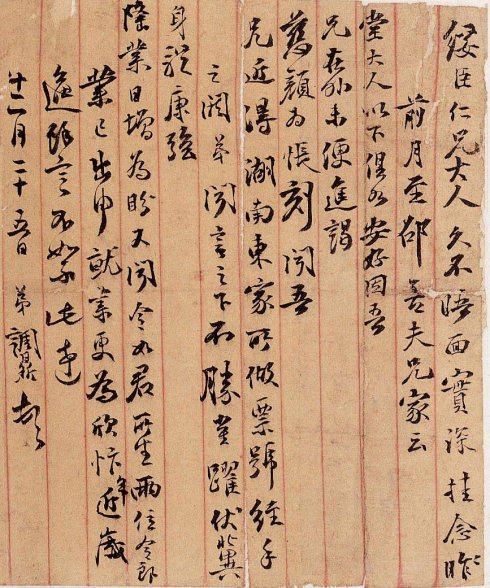 綏臣仁兄大人久不晤面實深挂念昨
前月至郤善夫兄家云
堂大人以下俱各安好因吾
兄在外未便進謁
慈顏為悵刻聞吾
兄近得湖南東家所做票號經手
之潤弟聞言之下不勝雀躍伏冀
身祉康強
隆業日增為盼又聞令如君所生兩位令郎
業已出申就業更為欣忭年近歲
逼餘言不如不此達
十二月二十五日 弟調鼎頓